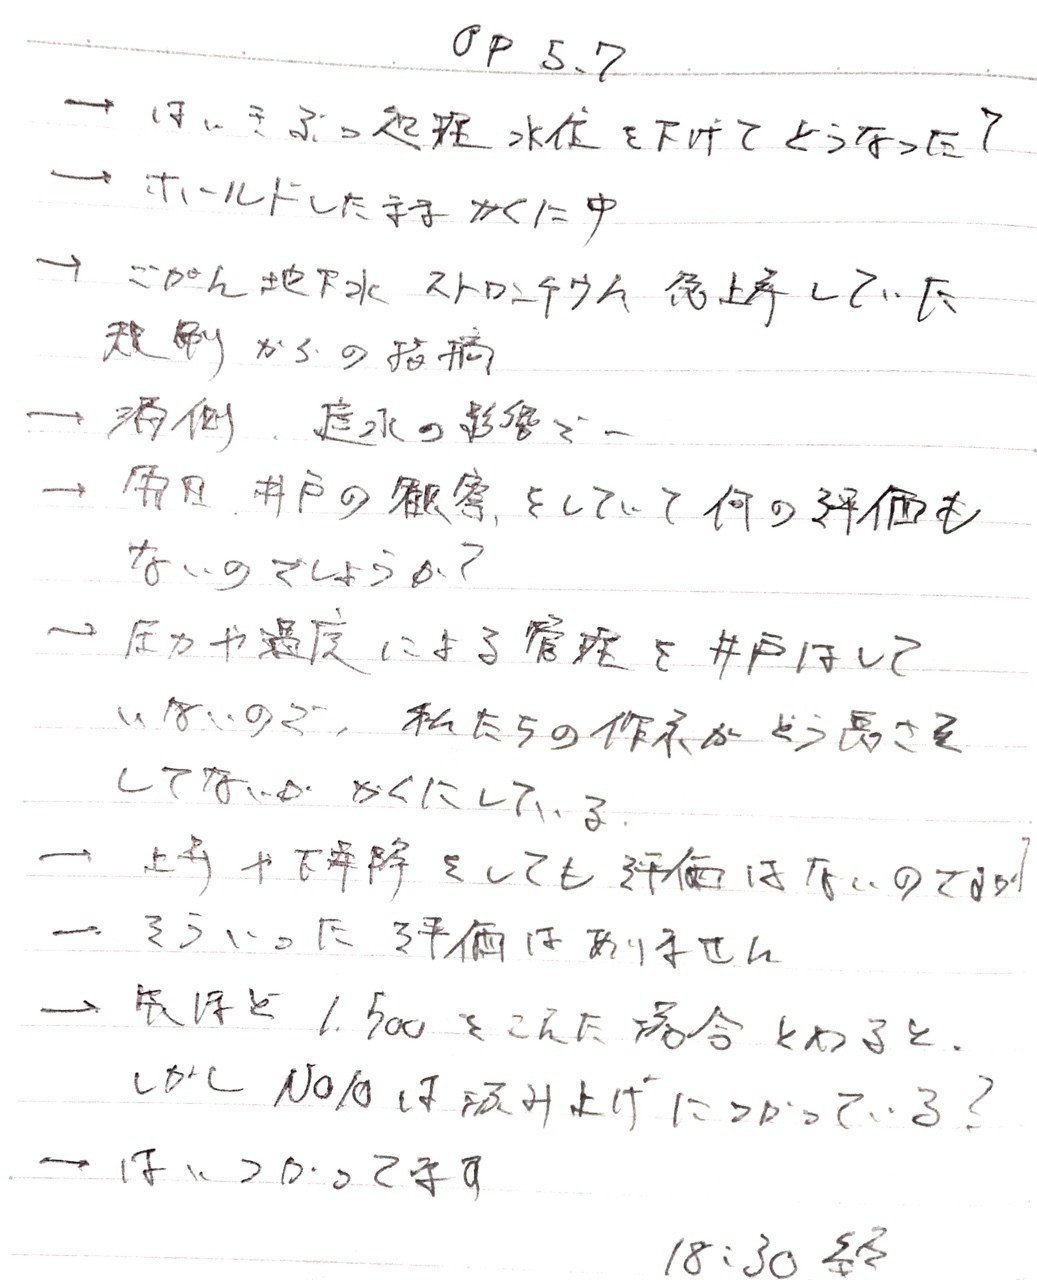 OP 5.7
→ はいきぶつ処理 水位を下げてどうなった?
→ ホールドしたまま かくに中
→ ごがん地下水 ストロンチウム 急上昇していた
規制からの指摘
→ 海側 の影響で ー
→ 井戸の観察をしていて何の評価も
ないのでしょうか?
→ 圧力や温度による管理を井戸はして
いないので、私たちの作業がどう さを
してないか かくにしている.
→ 上昇や下降をしても評価はないのですか?
→ そういった評価はありません
→ 先ほど 1.500をこえた場合とめると.
しかし No10は汲み上げにつかっている?
→ はいつかってます
18:30 終